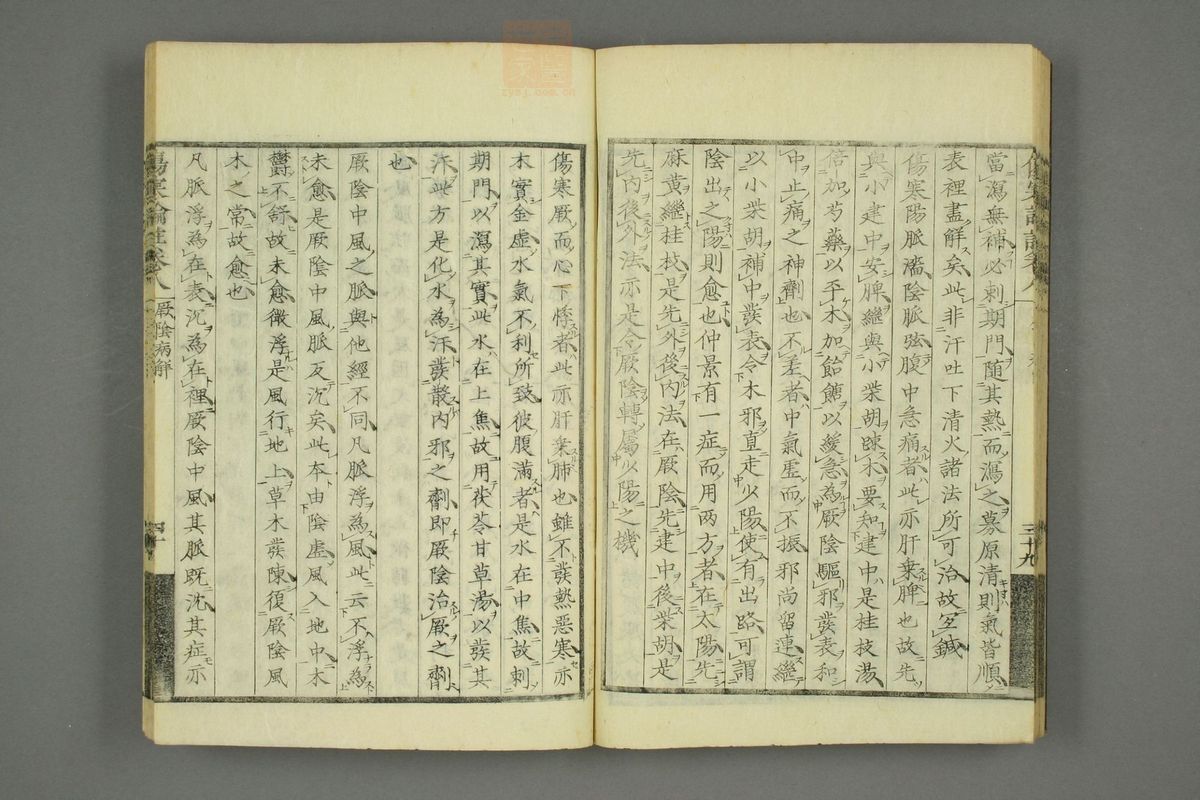 當瀉無補必刺期門隨其熱而瀉之募原清則氣皆順
表裡盡解矣此非汗吐下清火諸法所可治故至鍼
傷寒陽脈濇陰脈弦腹中急痛者此亦肝乗脾也故先
與小建中安脾繼與小柴胡疎木要知建中是桂枝湯
倍加芍藥以平木加飴餹以緩急為厥陰驅邪發表和
中止痛之神劑也不差者中氣虛而不振邪尚留連繼
以小柴胡補中發表令木邪直走少陽使有出路可謂
陰出之陽則愈也仲景有一症而用兩方者在太陽先
麻黄繼桂枝是先外後内法在厥陰先建中後柴胡是
先内後外法亦是令厥陰轉屬少陽之機
三十九
傷寒厥而心下悸者此亦肝乗肺也雖不發熱惡寒亦
木實金虛水氣不利所致彼腹滿者是水在中焦故刺
期門以瀉其實此水在上焦故用茯苓甘草湯以發其
汗此方是化水為汗發散内邪之劑即厥陰治厥之劑
也
厥陰中風之脈與他經不同凡脈浮為風此云不浮為
未愈是厥陰中風脈反沉矣此本由陰虛風入地中木
鬱不舒故未愈微浮是風行地上草木發陳復厥陰風
木之常故愈也
凡脈浮為在表沉為在裡厥陰中風其脈既沈其症亦
傷寒論註卷八 厥陰病解 四十
zysj.com.cn